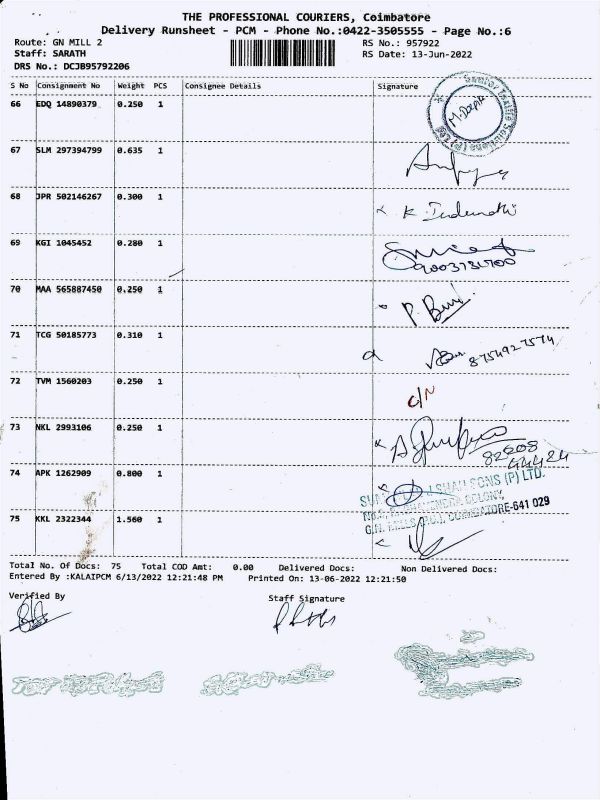 THE PROFESSIONAL COURIERS, Coimbatore
Delivery Runsheet - PCM - Phone No.:0422-3505555 - Page No.:6
Route: GN MILL 2
RS No.: 957922
Staff: SARATH
RS Date: 13-Jun-2022
DRS No.: DCJB95792206
S No Consignment No Weight PCS Consignee Details Signature
66 EDQ 14890379 0.250 1
67 SLM 297394799 0.635 1
68 JPR 502146267 0.300 1 K.
69 KGI 1045452 0.280 1
9003731700
70 MAA 565887450 0.250 1 P.
71 TCG 50185773 0.310 1 8754927574
72 TVM 1560203 0.250 1 C/N
73 NKL 2993106 0.250 1
82208
44424
74 APK 1262909 0.800 1
SHAH SONS (P) LTD.
COLONY,
COIMBATORE-641 029
75 KKL 2322344 1.560 1
Total No. Of Docs: 75 Total COD Amt: 0.00 Delivered Docs: Non Delivered Docs:
Entered By :KALAIPCM 6/13/2022 12:21:48 PM Printed On: 13-06-2022 12:21:50
Verified By Staff Signature